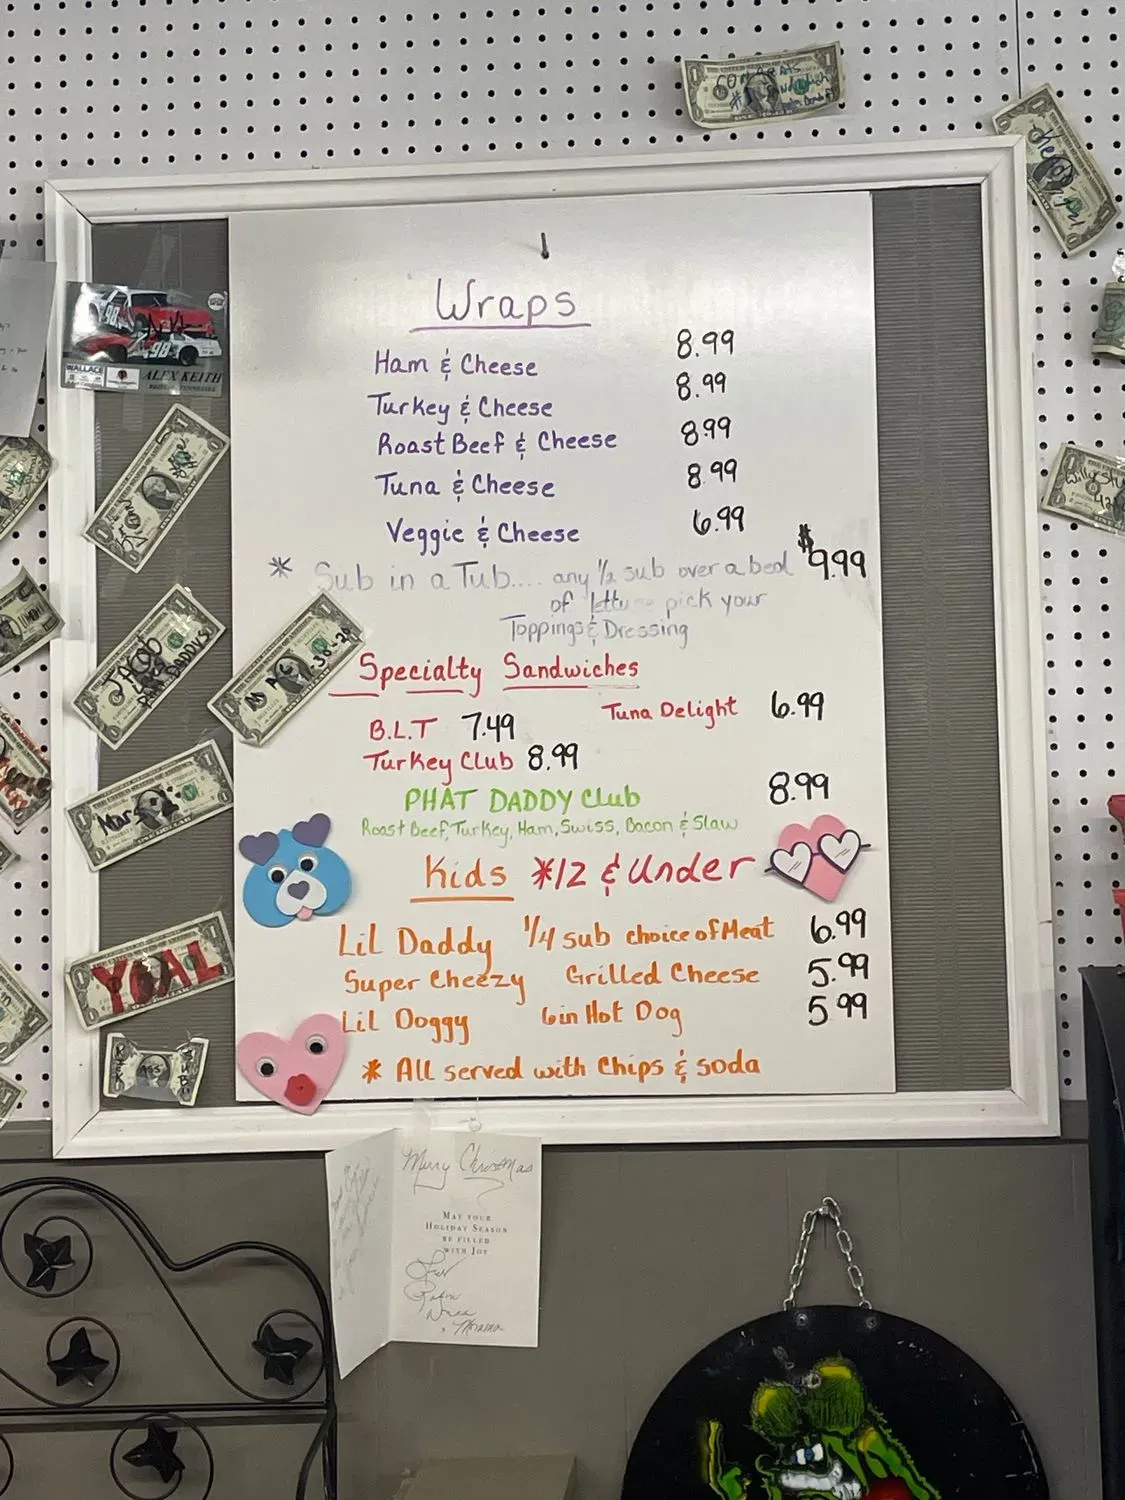 CONGRATS
Wraps
Ham & Cheese 8.99
Turkey & Cheese 8.99
Roast Beef & Cheese 8.99
Tuna & Cheese 8.99
Veggie & Cheese 6.99
* Sub in a Tub.... any 1/2 sub over a bed $9.99
of lettuce pick your
Toppings & Dressing
Specialty Sandwiches
B.L.T 7.49 Tuna Delight 6.99
Turkey Club 8.99
PHAT DADDY Club 8.99
Roast Beef, Turkey, Ham, Swiss, Bacon & Slaw
Kids *12 & Under
Lil Daddy 1/4 sub choice of Meat 6.99
Super Cheezy Grilled Cheese 5.99
Lil Doggy 6in Hot Dog 5.99
* All served with Chips & soda
98
98
WALLACE
ALEX KEITH
BRISTOL, TENNESSEE
YOAL
Merry Christmas
MAY YOUR
HOLIDAY SEASON
BE FILLED
WITH JOY